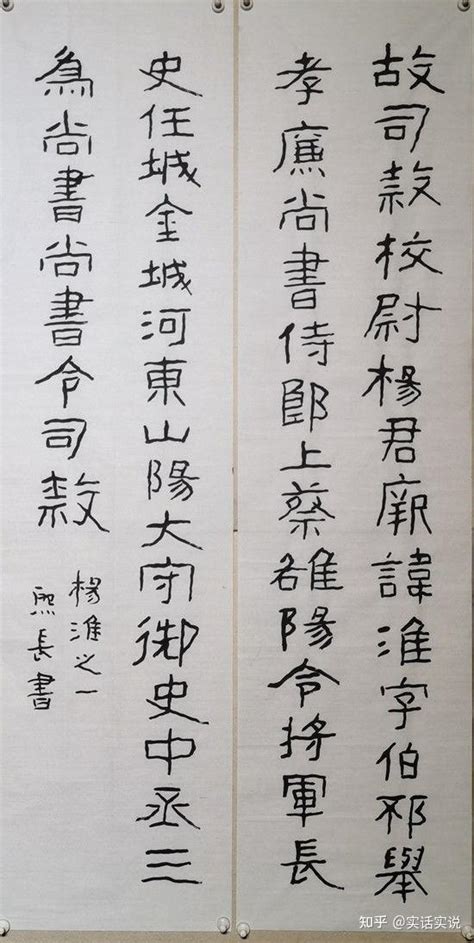 故司隸校尉楊君厥諱淮字伯邳舉
孝廉尚書侍郎上蔡雒陽令將軍長
史任城金城河東山陽大守御史中丞三
為尚書尚書令司隸
楊淮之一
熙長書
知乎 @实话实说